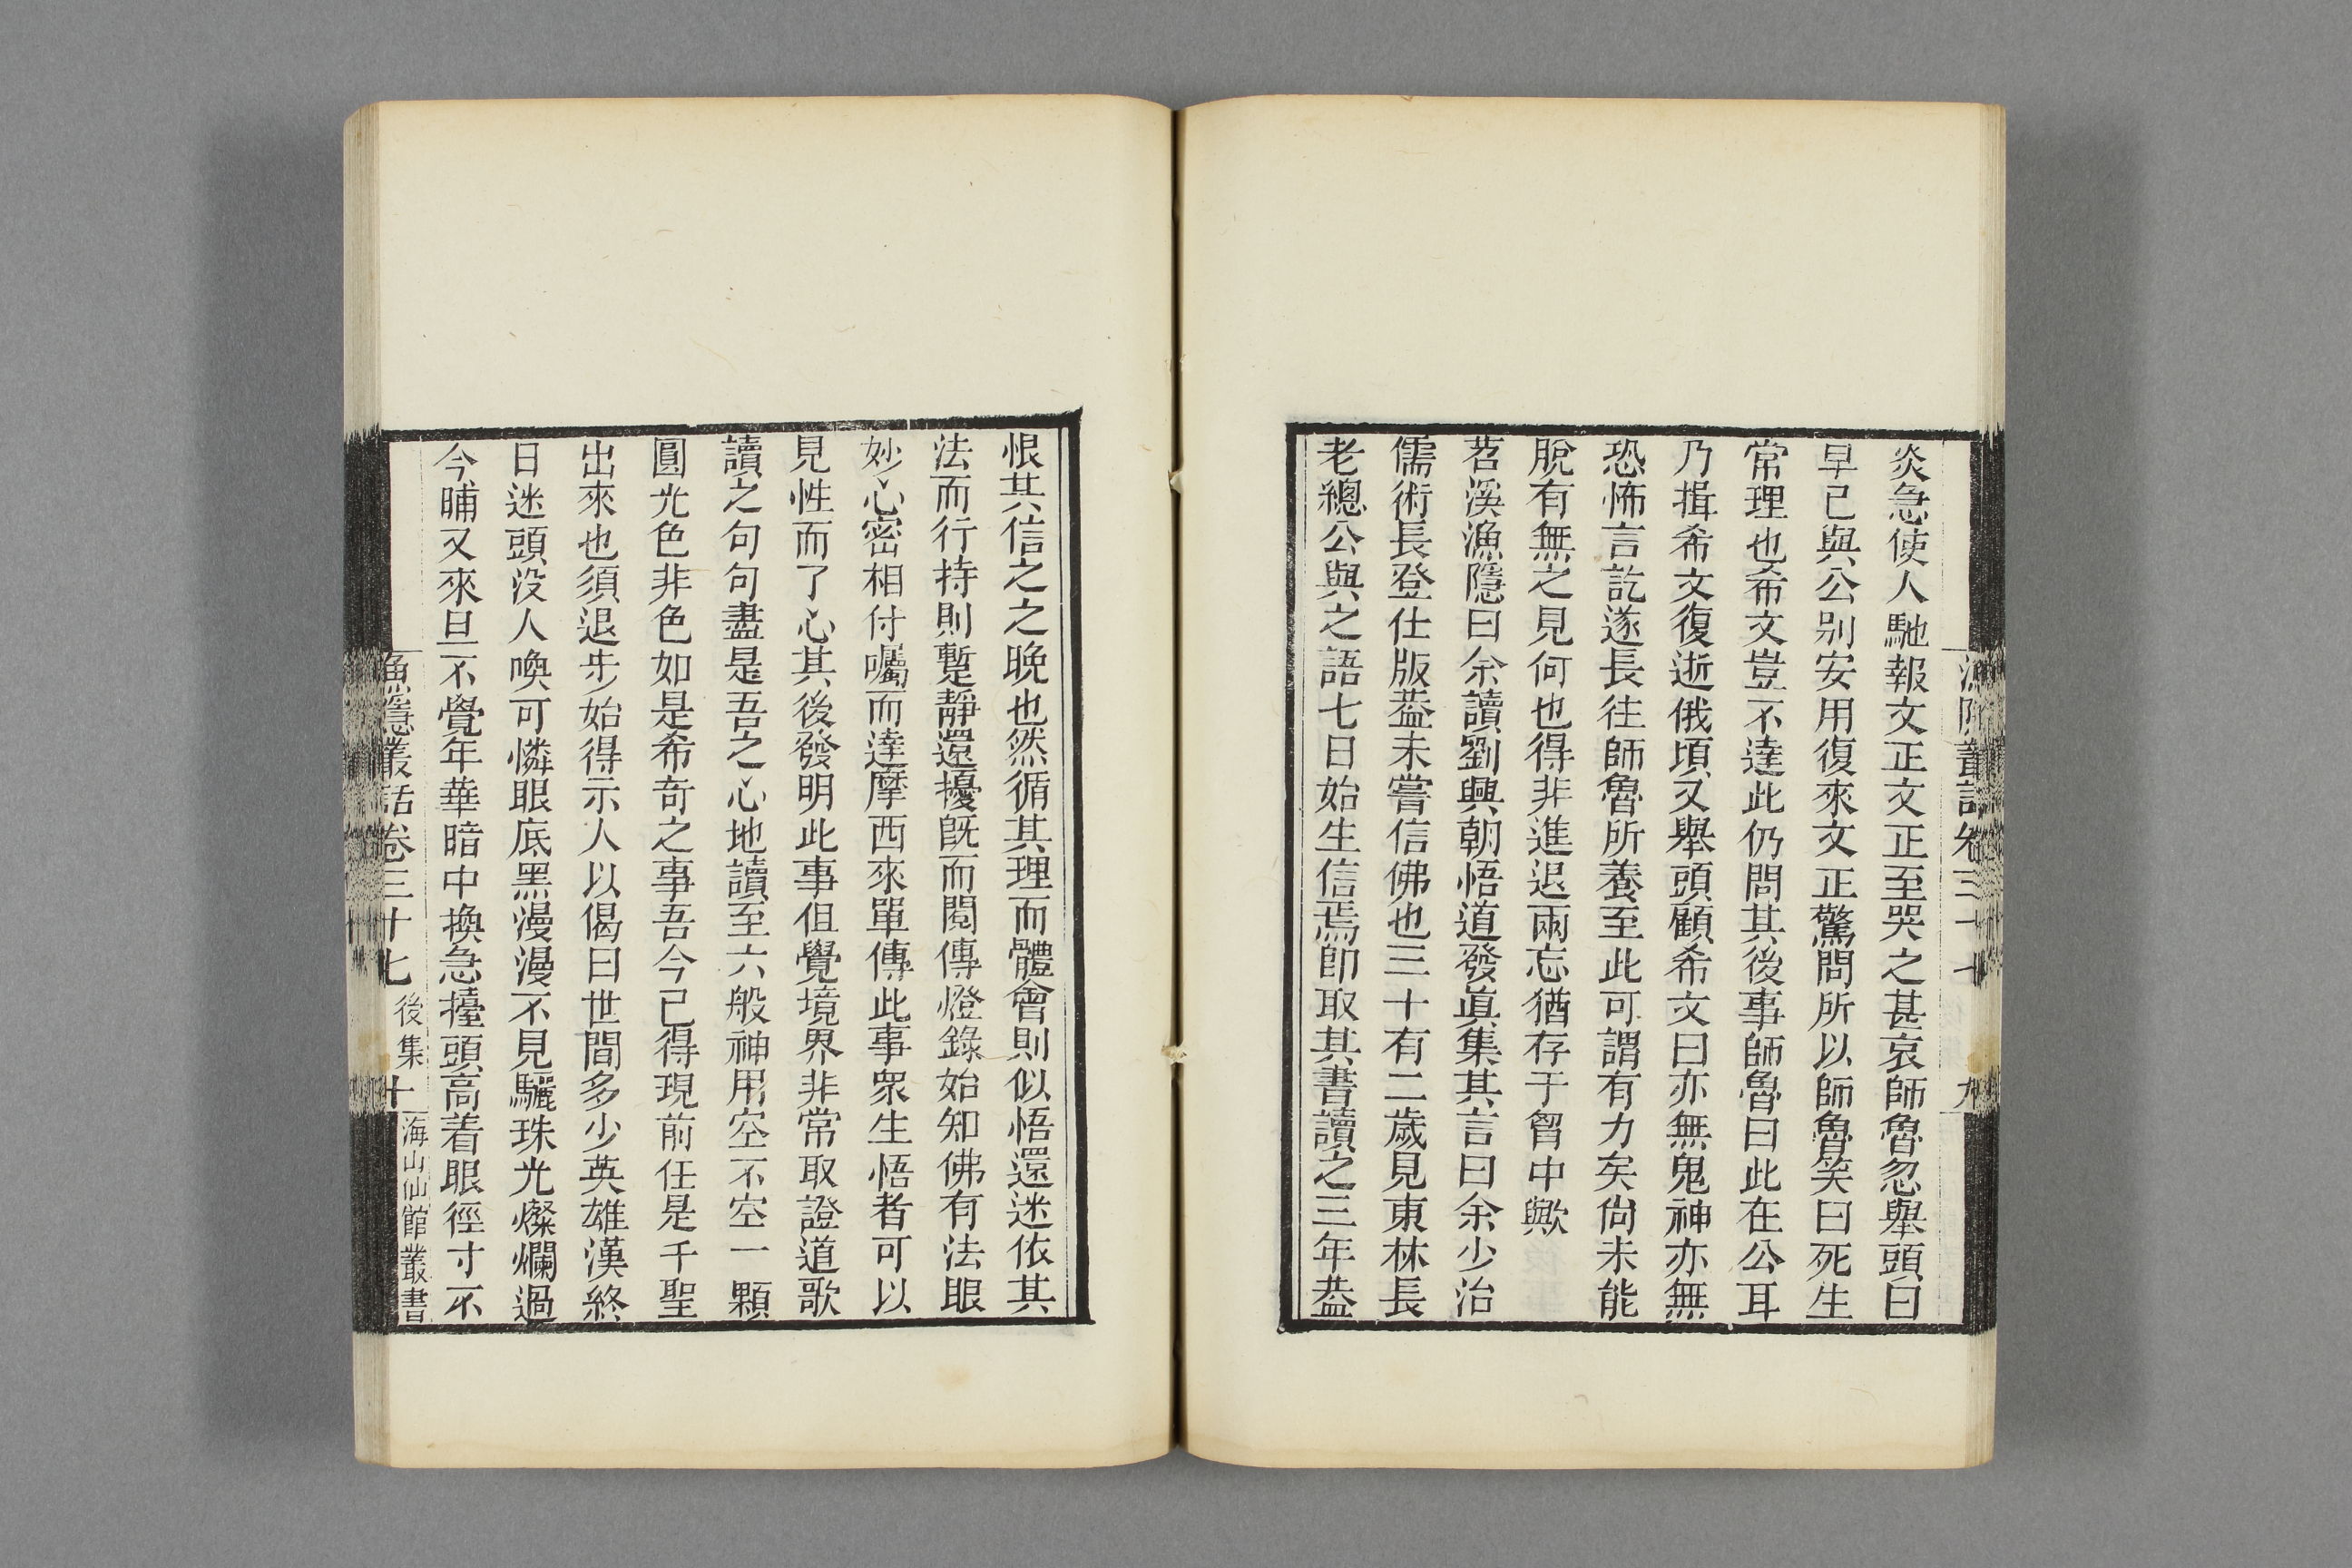 炎急使人馳報文正文正至哭之甚哀師魯忽舉頭曰
早已與公别安用復來文正驚問所以師魯笑曰死生
常理也希文豈不達此仍問其後事師魯曰此在公耳
乃揖希文復逝俄頃又舉頭顧希文曰亦無鬼神亦無
恐怖言訖遂長往師魯所養至此可謂有力矣尙未能
脫有無之見何也得非進退兩忘猶存于胷中歟
苕溪漁隱曰余讀劉興朝悟道發眞集其言曰余少治
儒術長登仕版葢未嘗信佛也三十有二歲見東林長
老總公與之語七日始生信焉卽取其書讀之三年葢
恨其信之之晚也然循其理而體會則似悟還迷依其
法而行持則暫靜還擾旣而閱傳燈錄始知佛有法眼
妙心密相付囑而達摩西來單傳此事衆生悟者可以
見性而了心其後發明此事但覺境界非常取證道歌
讀之句句盡是吾之心地讀至六般神用空不空一顆
圓光色非色如是希奇之事吾今已得現前任是千聖
出來也須退步始得示人以偈曰世間多少英雄漢終
日迷頭没人喚可憐眼底黑漫漫不見驪珠光燦爛過
今晡又來旦不覺年華暗中換急擡頭高着眼徑寸不
漁隱叢話卷三十七 後集 十 海山仙館叢書